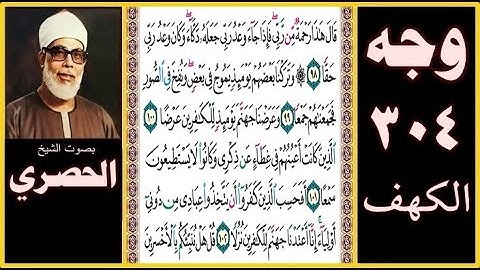 وجه
٣٠٤
الكهف
بصوت الشيخ
الحصري
قَالَ هَٰذَا رَحْمَةٌ مِّن رَّبِّي فَإِذَا جَاءَ وَعْدُ رَبِّي جَعَلَهُ دَكَّاءَ وَكَانَ وَعْدُ رَبِّي
حَقًّا ٩٨ وَتَرَكْنَا بَعْضَهُمْ يَوْمَئِذٍ يَمُوجُ فِي بَعْضٍ وَنُفِخَ فِي الصُّورِ
فَجَمَعْنَاهُمْ جَمْعًا ٩٩ وَعَرَضْنَا جَهَنَّمَ يَوْمَئِذٍ لِّلْكَافِرِينَ عَرْضًا ١٠٠
الَّذِينَ كَانَتْ أَعْيُنُهُمْ فِي غِطَاءٍ عَن ذِكْرِي وَكَانُوا لَا يَسْتَطِيعُونَ
سَمْعًا ١٠١ أَفَحَسِبَ الَّذِينَ كَفَرُوا أَن يَتَّخِذُوا عِبَادِي مِن دُونِي
أَوْلِيَاءَ إِنَّا أَعْتَدْنَا جَهَنَّمَ لِلْكَافِرِينَ نُزُلًا ١٠٢ قُلْ هَلْ نُنَبِّئُكُم بِالْأَخْسَرِينَ